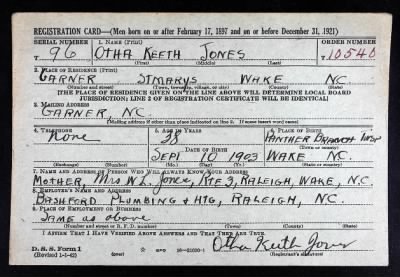 REGISTRATION CARD—(Men born on or after February 17, 1897 and on or before December 31, 1921)
SERIAL NUMBER 1. NAME (Print) ORDER NUMBER
T 96 OTHA KEETH JONES T 10540
2. PLACE OF RESIDENCE (Print)
GARNER ST MARYS WAKE NC
(Number and street) (Town, township, village, or city) (County) (State)
[THE PLACE OF RESIDENCE GIVEN ON THE LINE ABOVE WILL DETERMINE LOCAL BOARD
JURISDICTION; LINE 2 OF REGISTRATION CERTIFICATE WILL BE IDENTICAL]
3. MAILING ADDRESS
GARNER, NC.
[Mailing address if other than place indicated on line 2. If same insert word same]
4. TELEPHONE 5. AGE IN YEARS 6. PLACE OF BIRTH
None 38 PANTHER BRANCH TWSP
DATE OF BIRTH (Town or county)
SEPT 10 1903 WAKE N.C.
(Exchange) (Number) (Mo.) (Day) (Yr.) (State or country)
7. NAME AND ADDRESS OF PERSON WHO WILL ALWAYS KNOW YOUR ADDRESS
MOTHER, MRS W.L. JONES, RTE 3, RALEIGH, WAKE, N.C.
8. EMPLOYER'S NAME AND ADDRESS
BASHFORD PLUMBING & HTG, RALEIGH, NC.
9. PLACE OF EMPLOYMENT OR BUSINESS
Same as above
(Number and street or R. F. D. number) (Town) (County) (State)
I AFFIRM THAT I HAVE VERIFIED ABOVE ANSWERS AND THAT THEY ARE TRUE.
D. S. S. Form 1
(Revised 1-1-42) GPO 16—21630-1
Otha Keith Jones